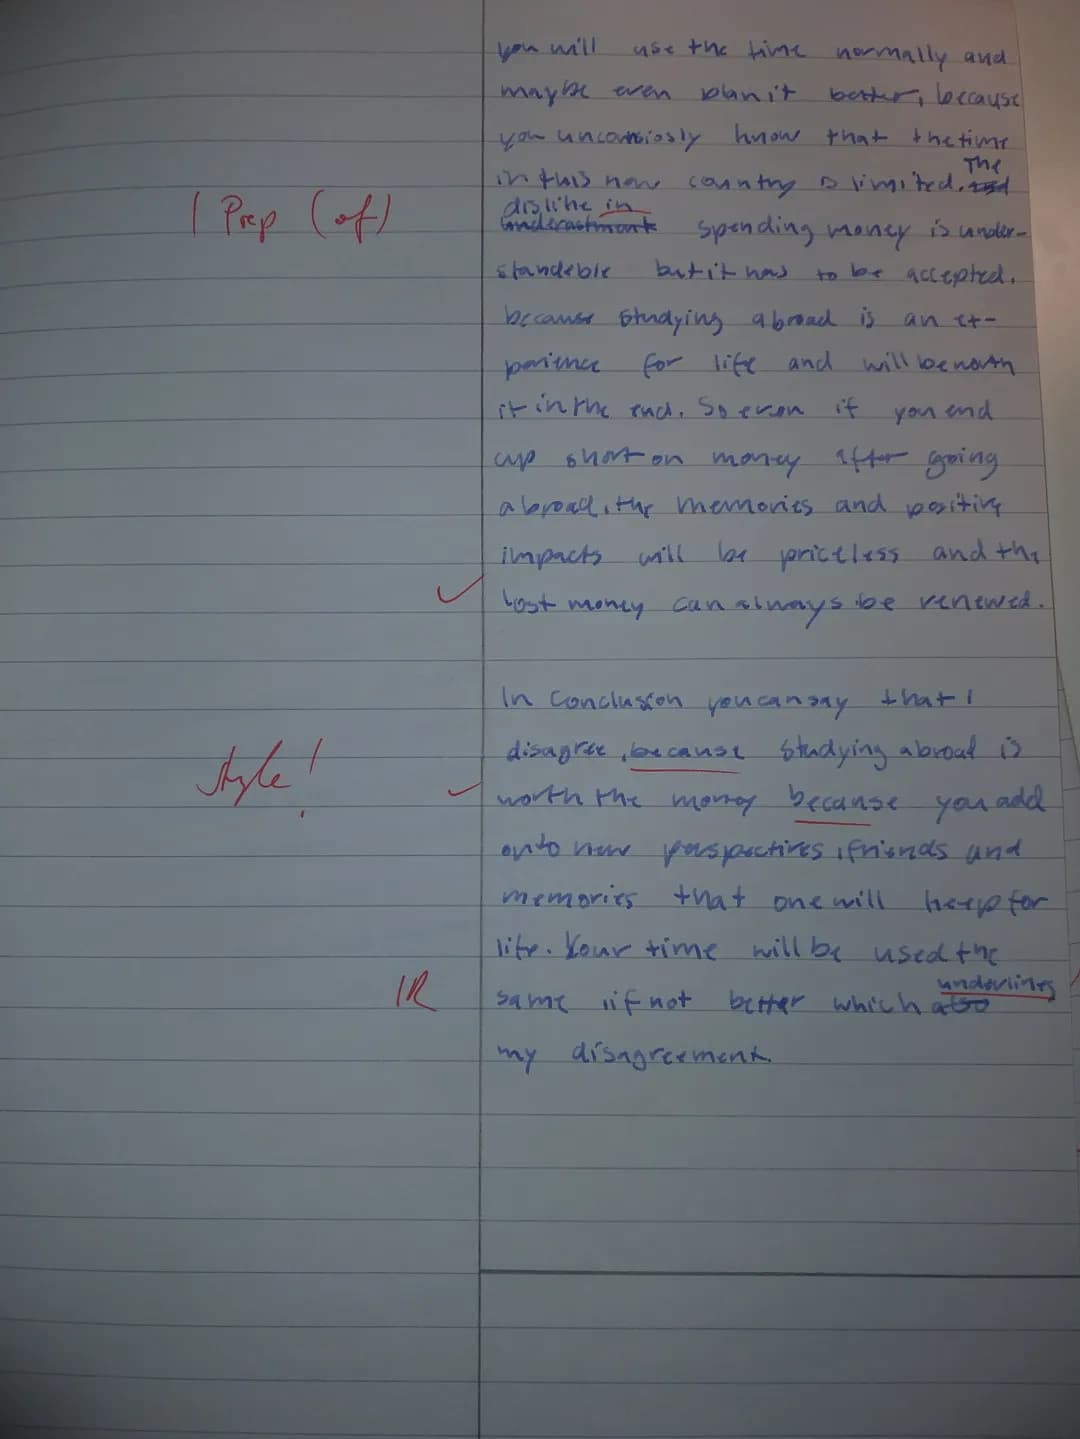 you will use the time normally and
maybe even plan it better, because
you unconsiosly know that the time
in this new country is limited. The
1 Prep (of)
dislike in spending money is under-
standeble but it has to be accepted.
because studying abroad is an ex-
perience for life and will be worth
it in the end. So even if you end
up short on money after going
abroad, the memories and positive
impacts will be priceless and the
lost money can always be renewed.
In conclusion you can say that I
disagree, because studying abroad is
Style!
worth the money because you add
onto new perspectives, friends and
memories that one will keep for
life. Your time will be used the
1R
same, if not better which underlines
my disagreement.